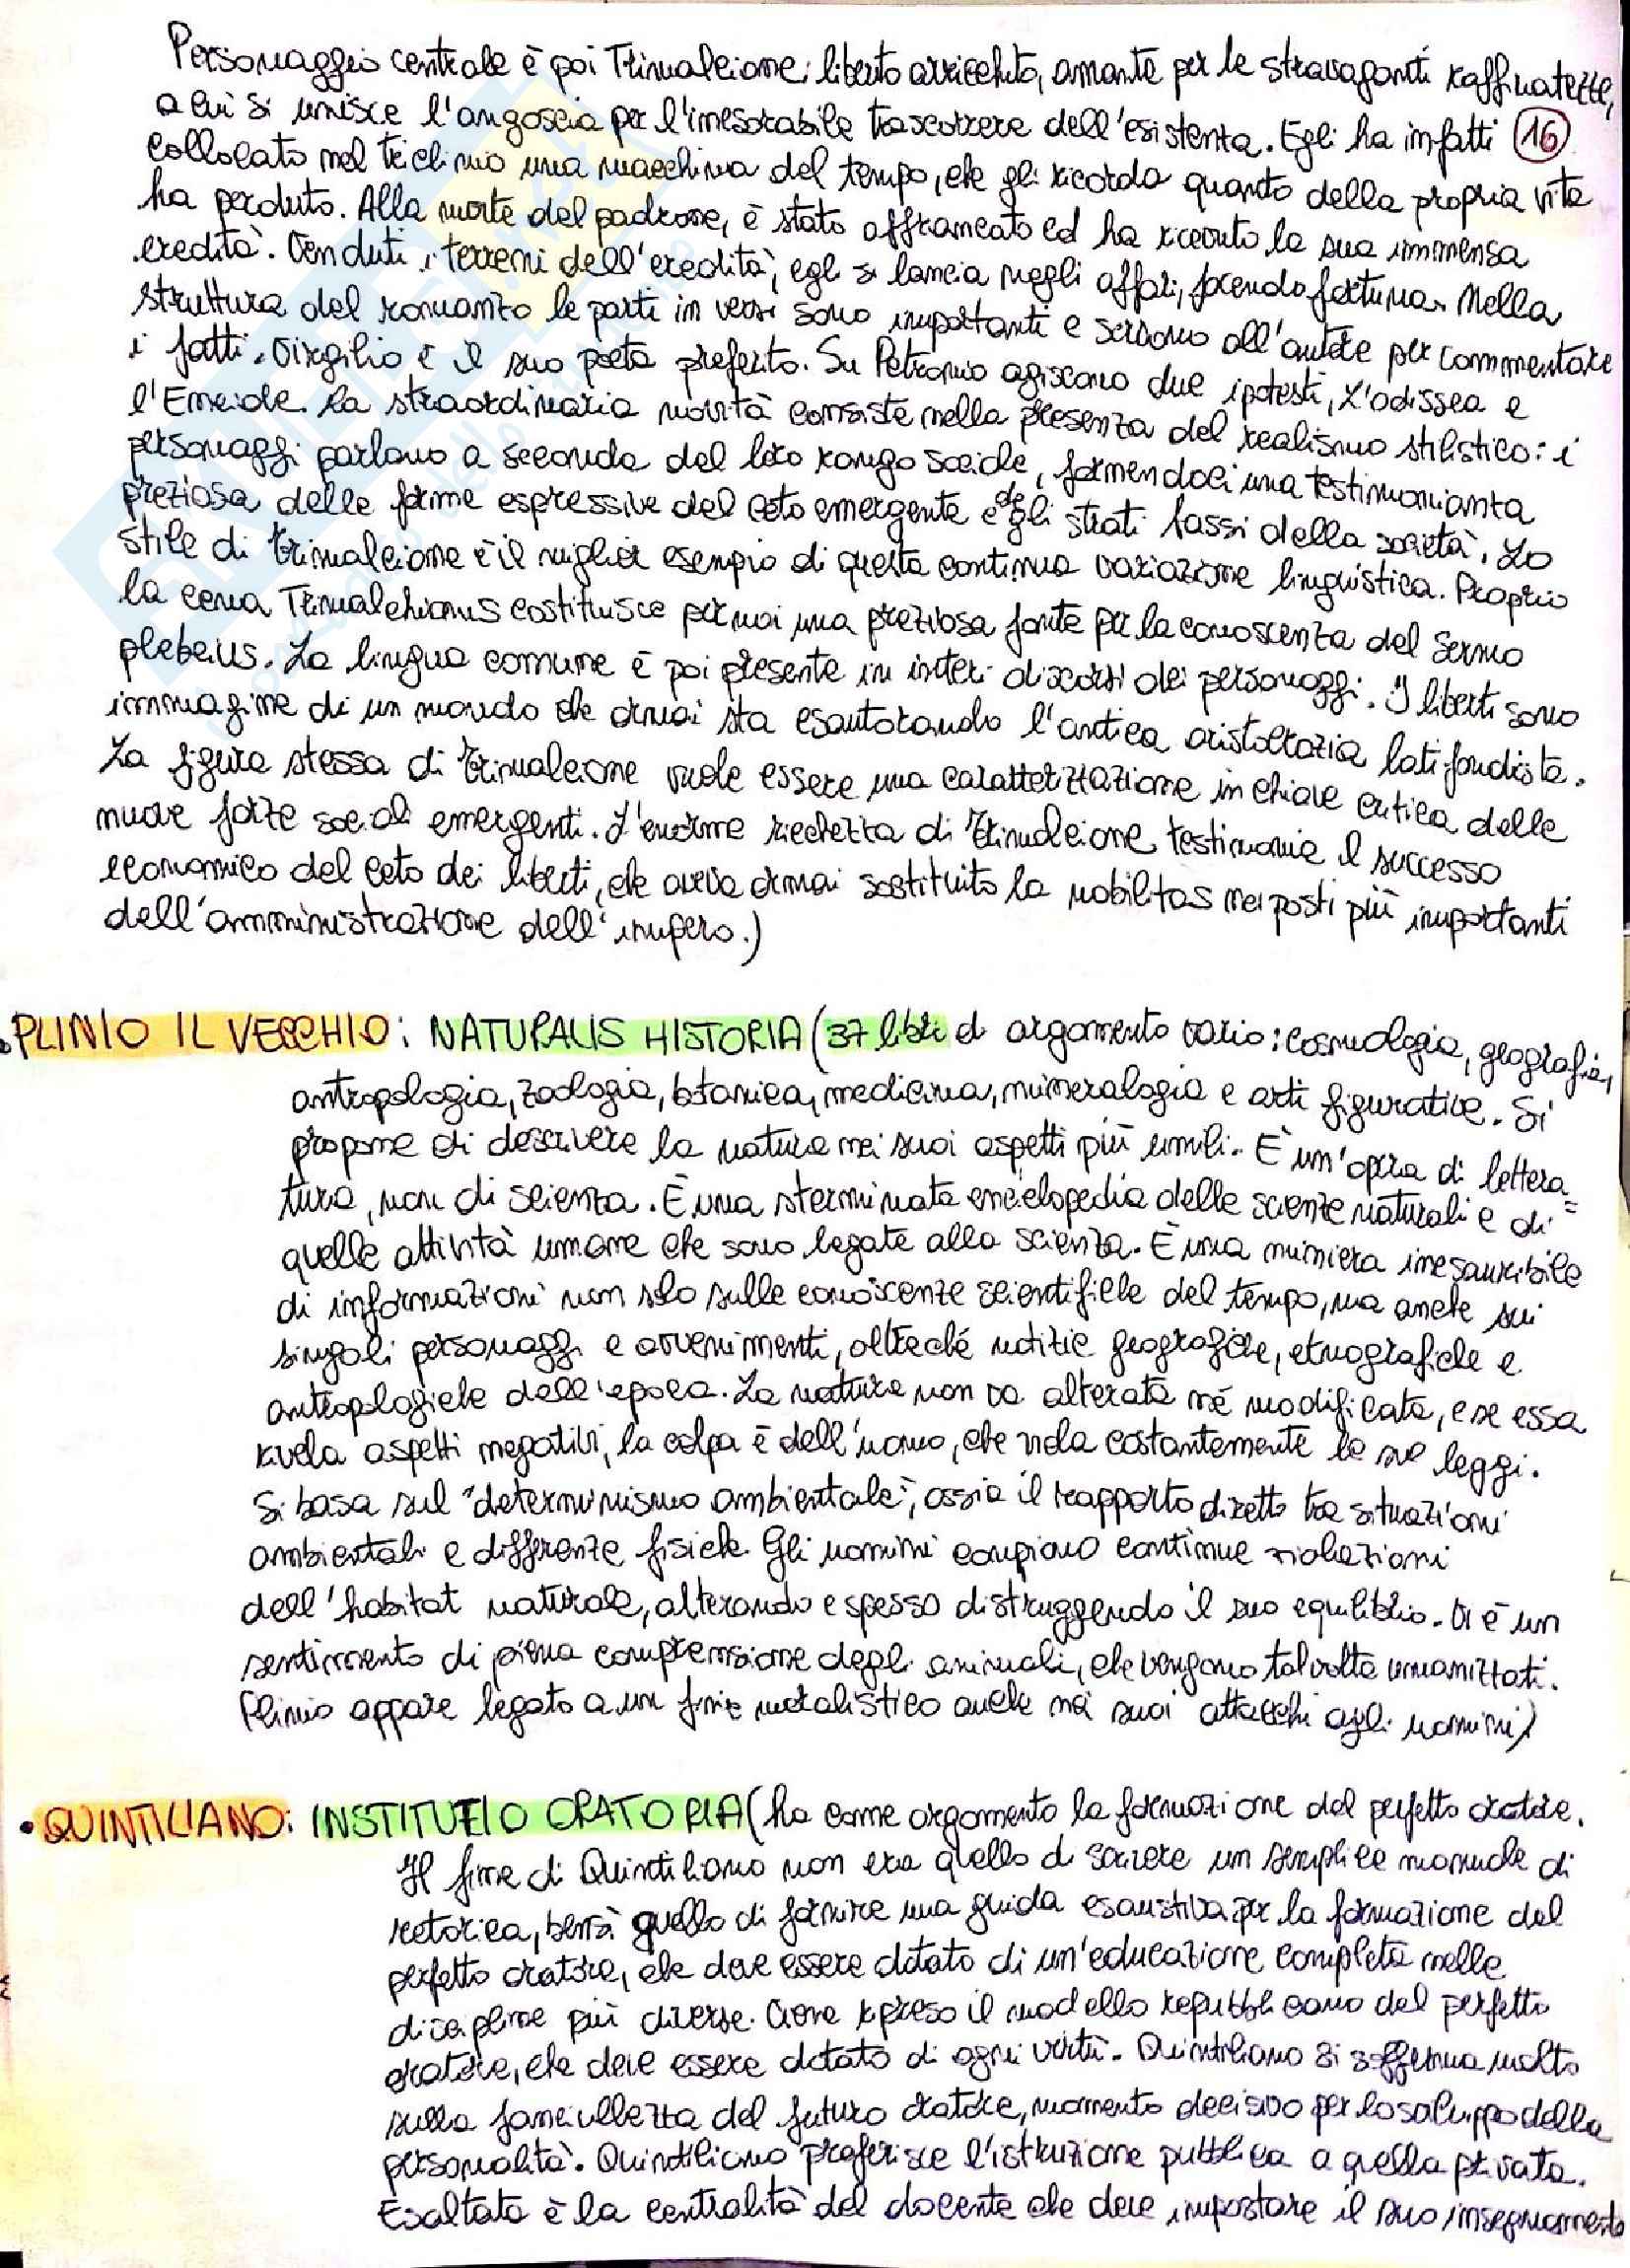 Personaggio centrale è poi Trimalcione: liberto arricchito, amante per le stravaganti raffinatezze,
a cui si unisce l'angoscia per l'inesorabile trascorrere dell'esistenza. Egli ha infatti 16
collocato nel triclinio una macchina del tempo, che gli ricorda quanto della propria vita
ha perduto. Alla morte del padrone, è stato affrancato ed ha ricevuto la sua immensa
eredità. Venduti i terreni dell'eredità, egli si lancia negli affari, facendo fortuna. Nella
struttura del romanzo le parti in versi sono importanti e servono all'autore per commentare
i fatti. Virgilio è il suo poeta preferito. Su Petronio agiscono due ipotesti, l'odissea e
l'Eneide. La straordinaria novità consiste nella presenza del realismo stilistico: i
personaggi parlano a seconda del loro rango sociale, fornendoci una testimonianza
preziosa delle forme espressive del ceto emergente e degli strati bassi della società. Lo
stile di Trimalcione è il miglior esempio di questa continua variazione linguistica. Proprio
la cena Trimalchionis costituisce per noi una preziosa fonte per la conoscenza del sermo
plebeius. La lingua comune è poi presente in interi discorsi dei personaggi. I liberti sono
immagine di un mondo che ormai sta esautorando l'antica aristocrazia latifondista.
La figura stessa di Trimalcione vuole essere una caratterizzazione in chiave critica delle
nuove forze sociali emergenti. L'enorme ricchezza di Trimalcione testimonia il successo
economico del ceto dei liberti, che aveva ormai sostituito la nobilitas nei posti più importanti
dell'amministrazione dell'impero.)
• PLINIO IL VECCHIO: NATURALIS HISTORIA (37 libri di argomento vario: cosmologia, geografia,
antropologia, zoologia, botanica, medicina, mineralogia e arti figurative. Si
propone di descrivere la natura nei suoi aspetti più umili. È un'opera di lettera=
tura, non di scienza. È una sterminata enciclopedia delle scienze naturali e di
quelle attività umane che sono legate alla scienza. È una miniera inesauribile
di informazioni non solo sulle conoscenze scientifiche del tempo, ma anche sui
singoli personaggi e avvenimenti, oltreché notizie geografiche, etnografiche e
antropologiche dell'epoca. La natura non va alterata né modificata, e se essa
rivela aspetti negativi, la colpa è dell'uomo, che viola costantemente le sue leggi.
Si basa sul "determinismo ambientale", ossia il rapporto diretto tra situazioni
ambientali e differenze fisiche. Gli uomini compiono continue violazioni
dell'habitat naturale, alterando e spesso distruggendo il suo equilibrio. Vi è un
sentimento di piena comprensione degli animali, che vengono talvolta umanizzati.
Plinio appare legato a un fine moralistico anche nei suoi attacchi agli uomini)
• QUINTILIANO: INSTITUTIO ORATORIA (ha come argomento la formazione del perfetto oratore.
Il fine di Quintiliano non era quello di scrivere un semplice manuale di
retorica, bensì quello di fornire una guida esaustiva per la formazione del
perfetto oratore, che deve essere dotato di un'educazione completa nelle
discipline più diverse. Viene ripreso il modello repubblicano del perfetto
oratore, che deve essere dotato di ogni virtù. Quintiliano si sofferma molto
sulla fanciullezza del futuro oratore, momento decisivo per lo sviluppo della
personalità. Quintiliano preferisce l'istruzione pubblica a quella privata.
Esaltata è la centralità del docente che deve impostare il suo insegnamento